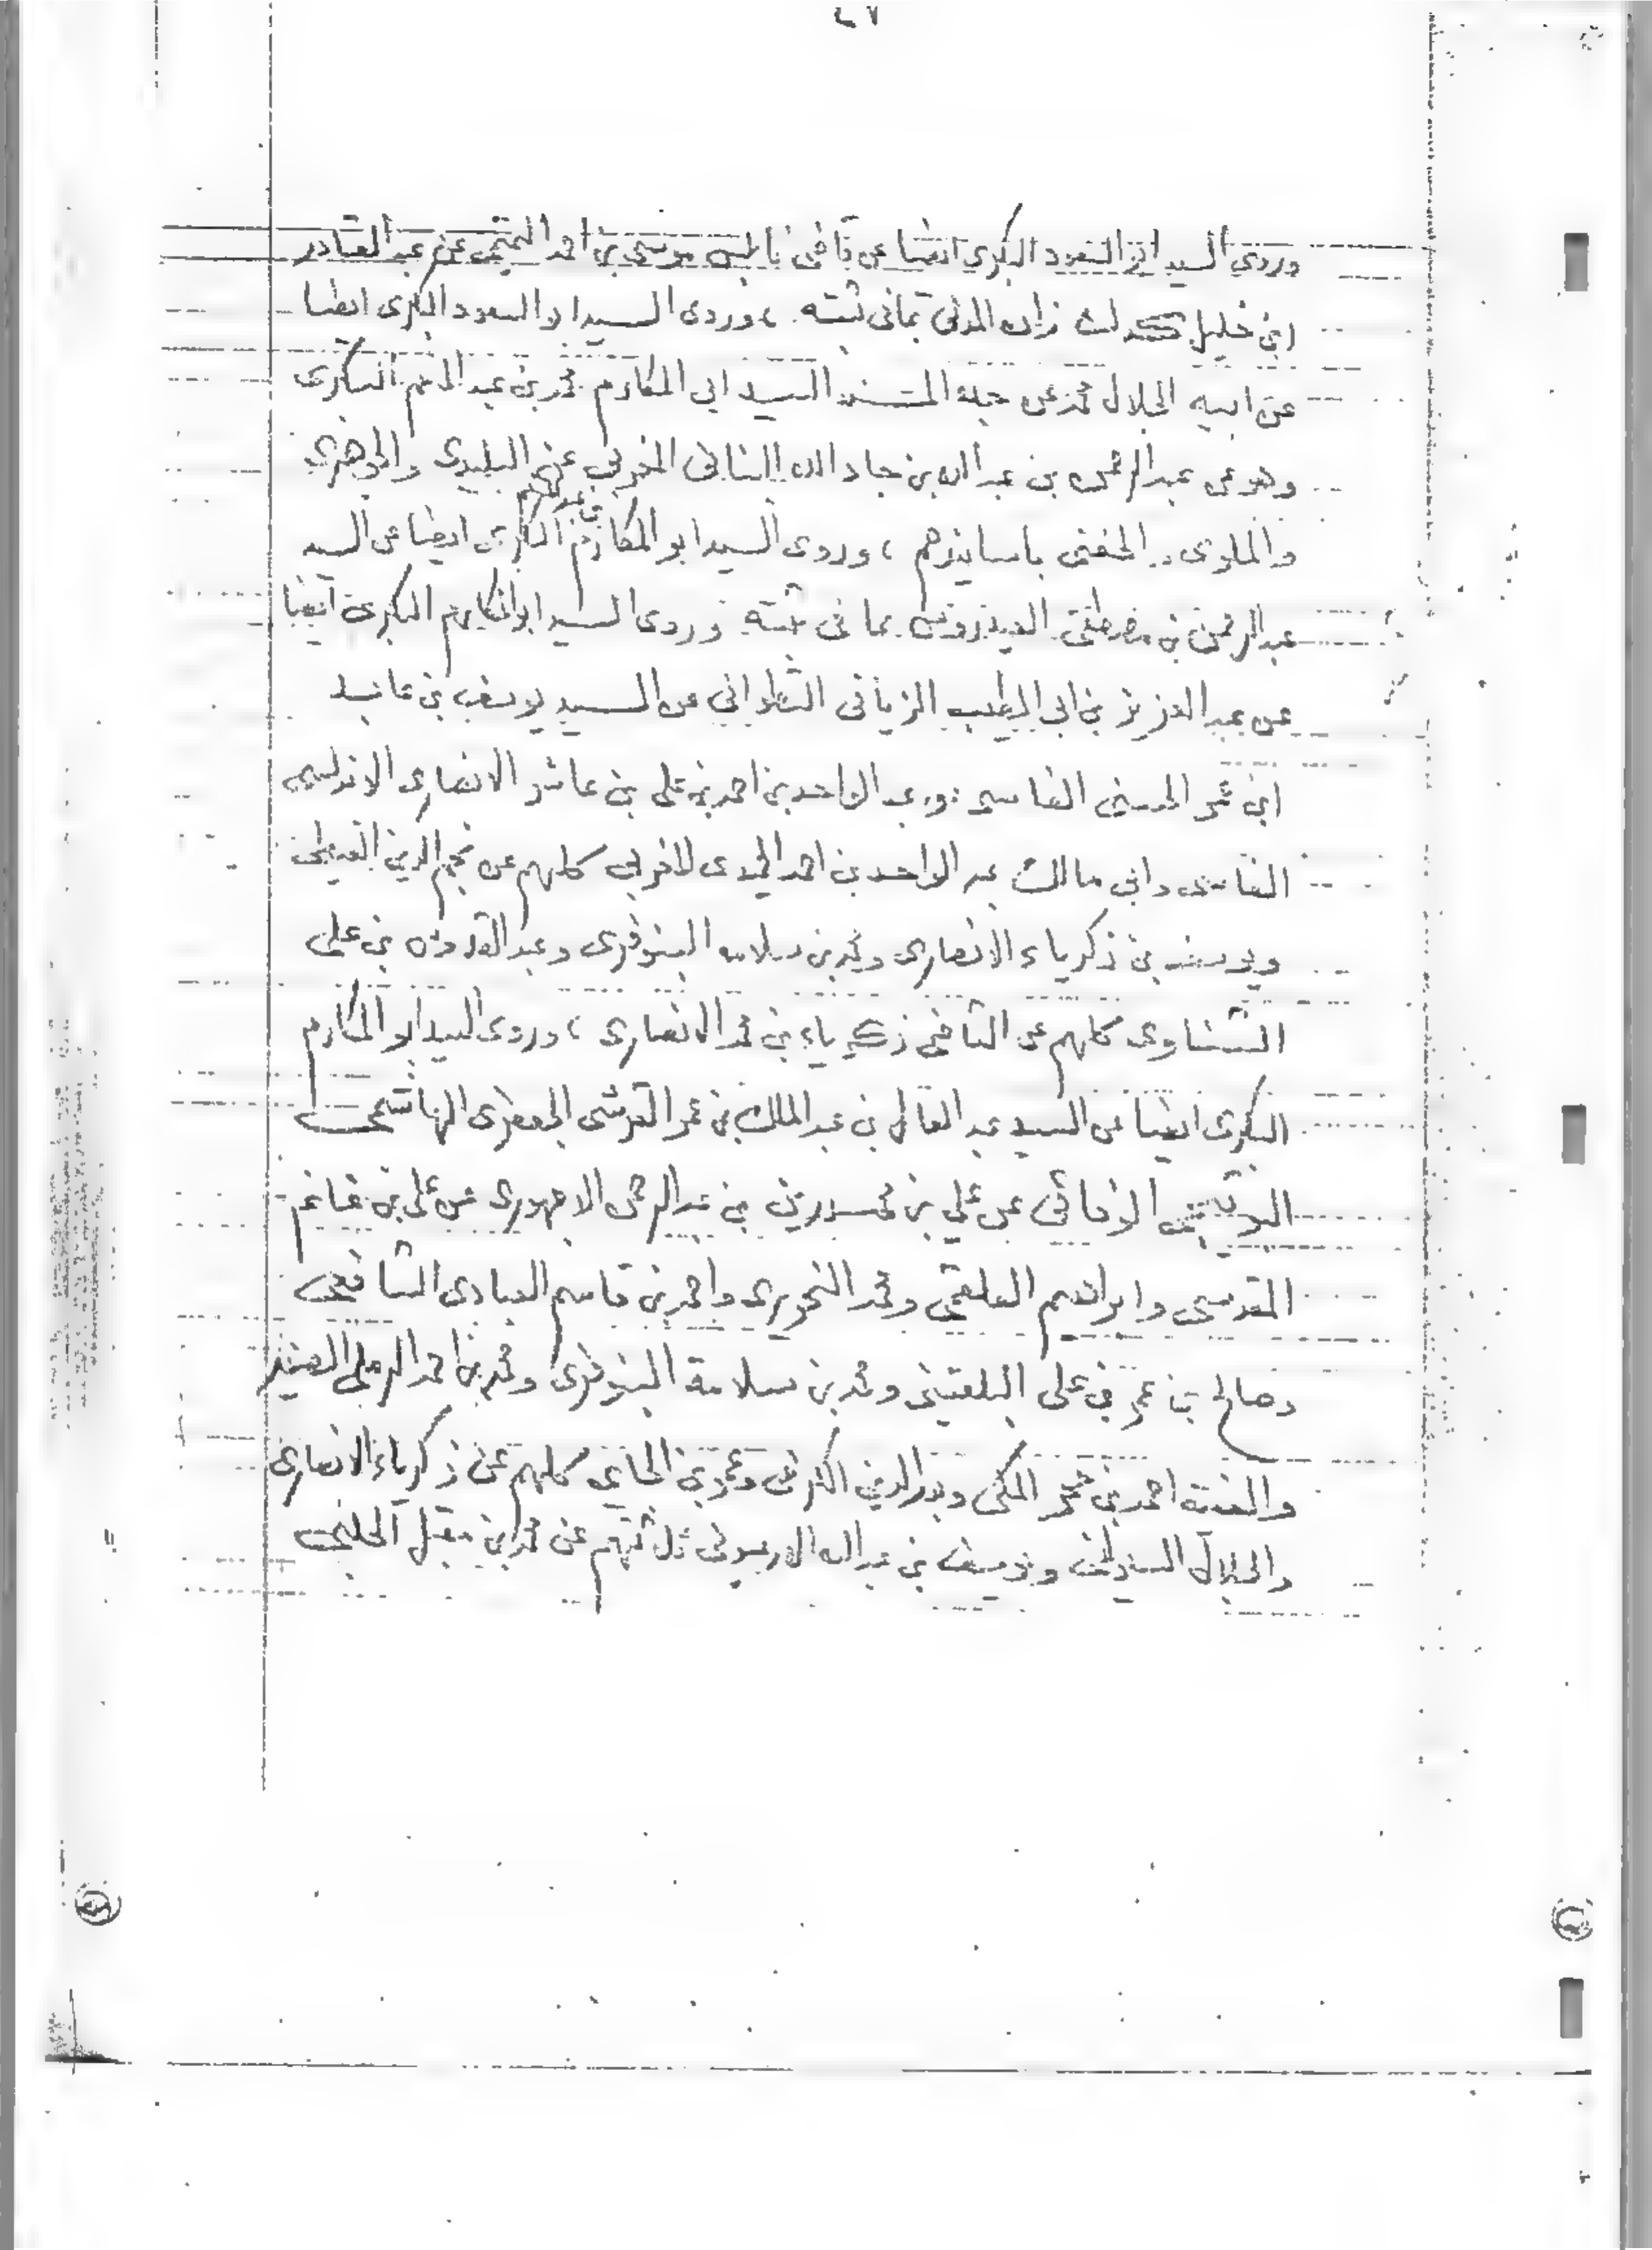 ٤٧
وروى السيد ابو السعود البكرى ايضا عن قاضى نابلس موسى بن احمد التميمى عن عبد القادر
ابن خليل كدك زاده المدنى بما فى ثبته ، وروى السيد ابو السعود البكرى ايضا
عن ابيه الجلال محمد عن جده المسند السيد ابى المكارم محمد بن عبد المنعم البكرى
وهو عن عبد الرحمن بن عبد الله بن جاد الله البنانى المغربى عن البليدى والجوهرى
والملوى والحفنى باسانيدهم ، وروى السيد ابو المكارم البكرى ايضا عن السيد
عبد الرحمن بن مصطفى العيدروس بما فى ثبته وروى السيد ابو المكارم البكرى ايضا
عن عبد العزيز بن ابى الطيب الزياتى التطوانى عن السيد يوسف بن عابد
ابن محمد الحسنى الفاسى وعبد الواحد بن احمد بن على بن عاشر الانصارى الاندلسى
الفاسى وابى مالك عبد الواحد بن احمد كلهم عن نجم الدين الغيطى
ويوسف بن زكرياء الانصارى ومحمد بن سلامه البنوفرى وعبد القدوس بن على
الشناوى كلهم عن القاضى زكرياء بن محمد الانصارى ، وروى السيد ابو المكارم
البكرى ايضا عن السيد عبد العال بن عبد الملك بن عمر القرشى الجعفرى الهاشمى
الوفائى عن على بن محمد زين بن عبد الرحمن الاجهورى عن على بن غانم
المقدسى وابراهيم العلقمى ومحمد النحريرى واحمد بن قاسم العبادى الشافعى
وصالح بن عمر بن على البلقينى ومحمد بن سلامة البنوفرى ومحمد بن احمد الرملى الصغير
والفقيه احمد بن حجر المكى وبدر الدين الكرخى وعمر بن الجاى كلهم عن زكرياء الانصارى
والجلال السيوطى ويوسف بن عبد الله الارميونى ثلاثتهم عن محمد بن مقبل الحلبى